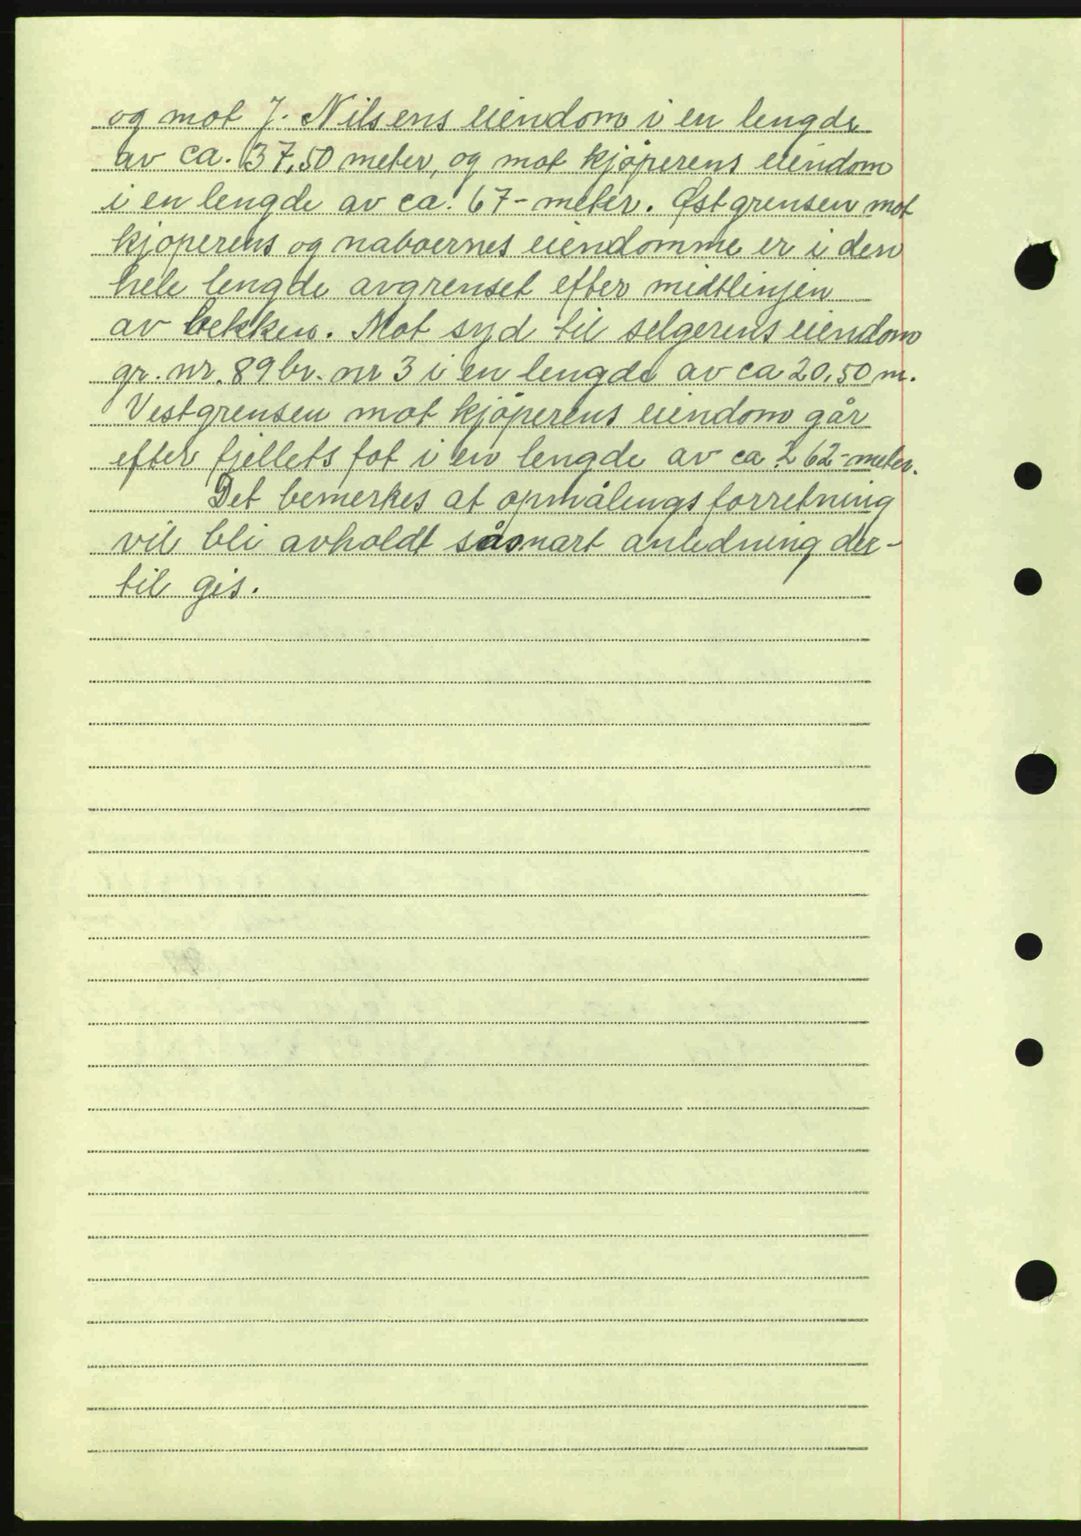 og mot J. Nilsens eiendom i en lengde
av ca. 37,50 meter, og mot kjöperens eiendom
i en lengde av ca. 67- meter. Østgrensen mot
kjöperens og naboernes eiendomme er i den
hele lengde avgrenset efter midtlinjen
av bekken. Mot syd til selgerens eiendom
gr. nr. 89 br. nr 3 i en lengde av ca 20,50 m.
Vestgrensen mot kjöperens eiendom går
efter fjellets fot i en lengde av ca 262- meter.
Det bemerkes at opmålingsforretning
vil bli avholdt såsnart anledning der-
til gis.